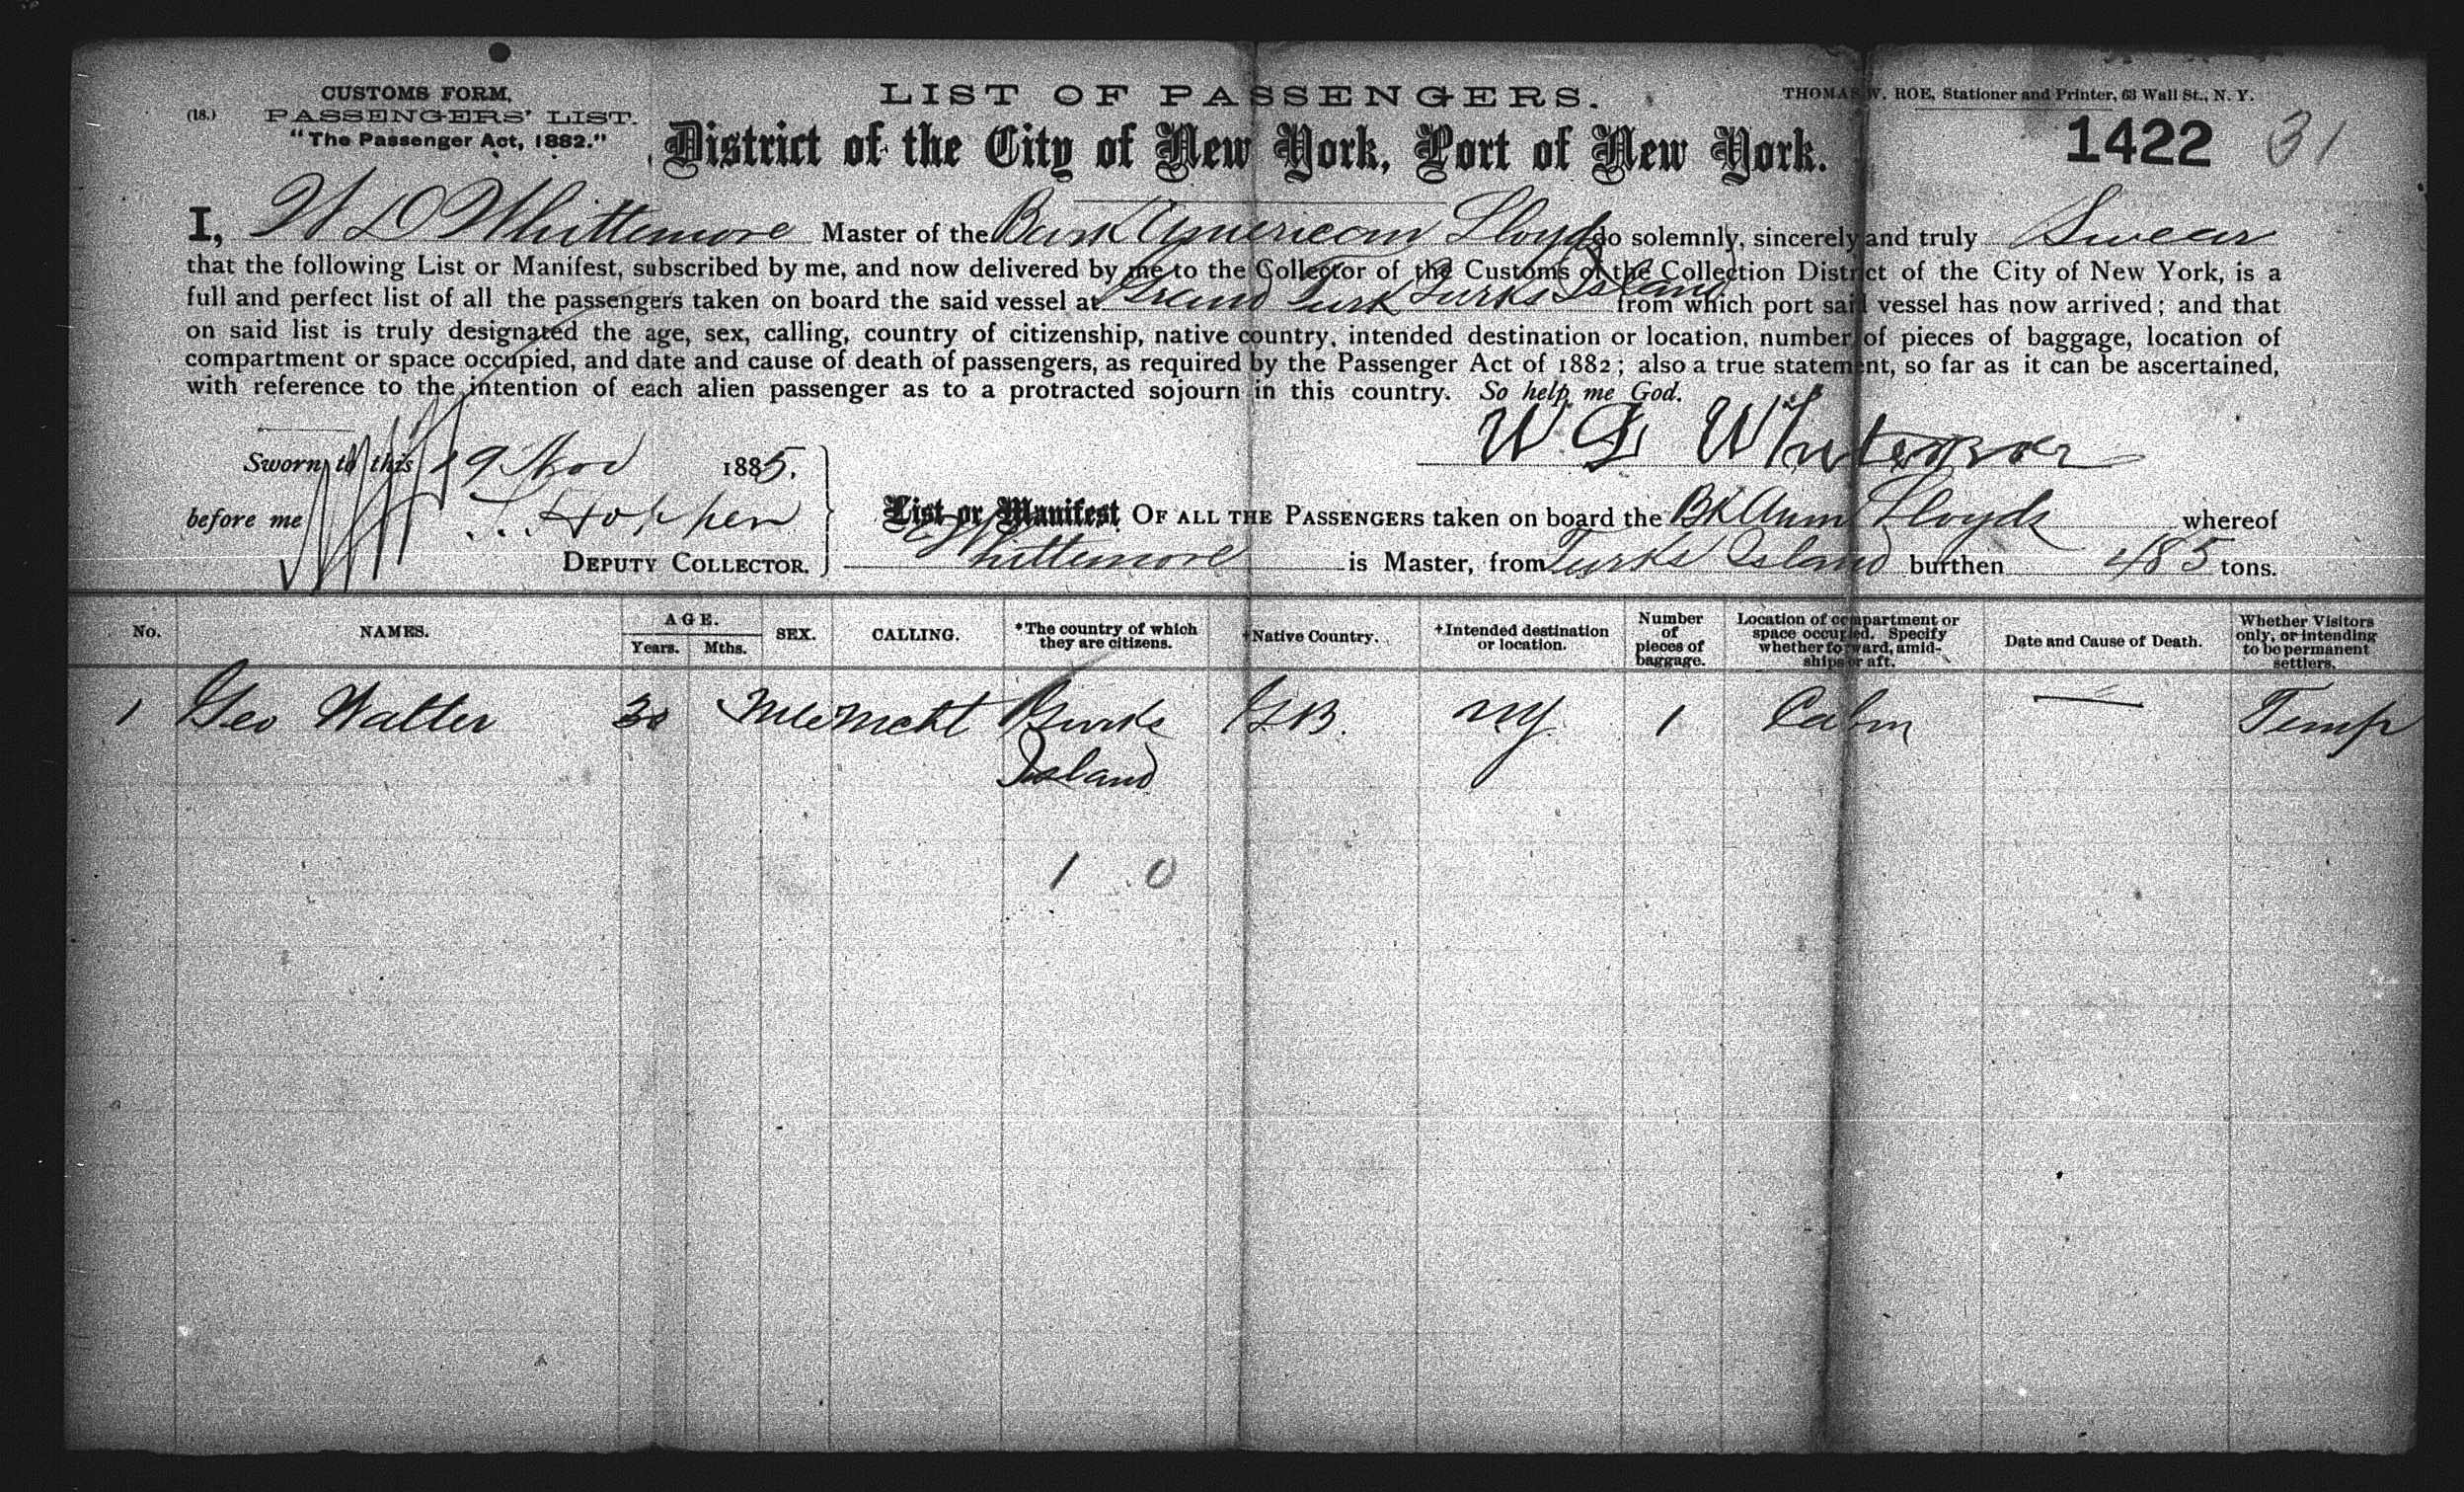 CUSTOMS FORM,
(18.) PASSENGERS' LIST.
"The Passenger Act, 1882."
LIST OF PASSENGERS.
THOMAS W. ROE, Stationer and Printer, 63 Wall St., N. Y.
District of the City of New York, Port of New York.
1422 31
I, W D Whittemore Master of the Bark American Lloyds do solemnly, sincerely and truly Swear
that the following List or Manifest, subscribed by me, and now delivered by me to the Collector of the Customs of the Collection District of the City of New York, is a
full and perfect list of all the passengers taken on board the said vessel at Grand Turk Turks Island from which port said vessel has now arrived; and that
on said list is truly designated the age, sex, calling, country of citizenship, native country, intended destination or location, number of pieces of baggage, location of
compartment or space occupied, and date and cause of death of passengers, as required by the Passenger Act of 1882; also a true statement, so far as it can be ascertained,
with reference to the intention of each alien passenger as to a protracted sojourn in this country. So help me God.
W D Whittemore
Sworn to this 19 Nov 1885.
before me Hopper
DEPUTY COLLECTOR.
List or Manifest OF ALL THE PASSENGERS taken on board the Bk Amn Lloyds whereof
Whittemore is Master, from Turks Island burthen 485 tons.
No. NAMES. AGE. Years. Mths. SEX. CALLING. *The country of which they are citizens. †Native Country. ‡Intended destination or location. Number of pieces of baggage. Location of compartment or space occupied. Specify whether forward, amidships or aft. Date and Cause of Death. Whether Visitors only, or intending to be permanent settlers.
1 Geo Walter 30 Mle Mcht Turks Island G.B. NY 1 Cabin — Temp
1 0